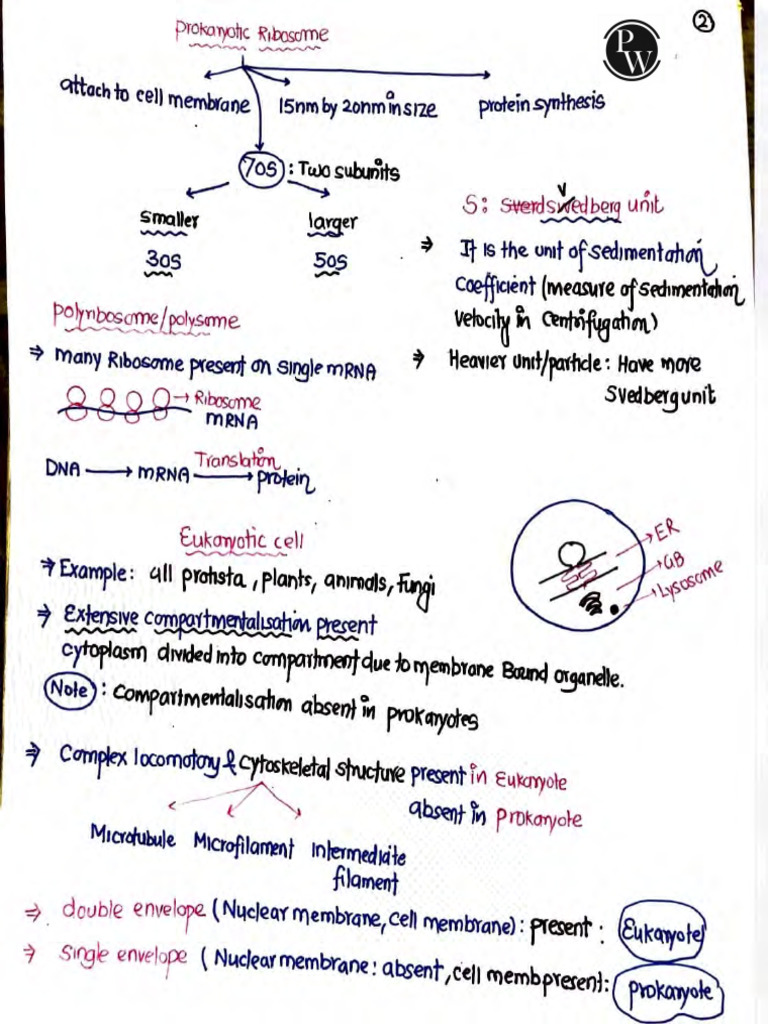 ②
PW
Prokaryotic Ribosome
attach to cell membrane
15nm by 20nm in size
protein synthesis
70S : Two subunits
smaller
larger
30S
50S
S: Sverd Svedberg unit
⇒ It is the unit of sedimentation
coefficient (measure of sedimentation
velocity in centrifugation)
⇒ Heavier unit/particle : Have more
Svedberg unit
polyribosome/polysome
⇒ many Ribosome present on single mRNA
→ Ribosome
mRNA
DNA → mRNA Translation → protein
Eukaryotic cell
⇒ Example: all protista, plants, animals, Fungi
→ ER
→ GB
→ Lysosome
⇒ Extensive compartmentalisation present
cytoplasm divided into compartment due to membrane Bound organelle.
Note : compartmentalisation absent in prokaryotes
⇒ Complex locomotory & cytoskeletal structure present in Eukaryote
absent in Prokaryote
Microtubule Microfilament Intermediate
filament
⇒ double envelope (Nuclear membrane, cell membrane) : present : Eukaryote
⇒ single envelope (Nuclear membrane : absent, cell memb present: prokaryote